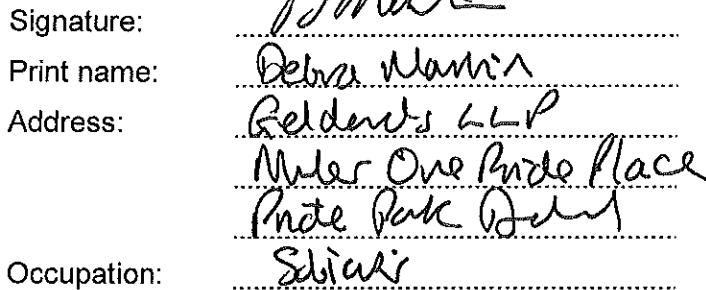 Signature:
Print name: Debra Martin
Address: Geldards LLP
Number One Pride Place
Pride Park Derby
Occupation: Solicitor